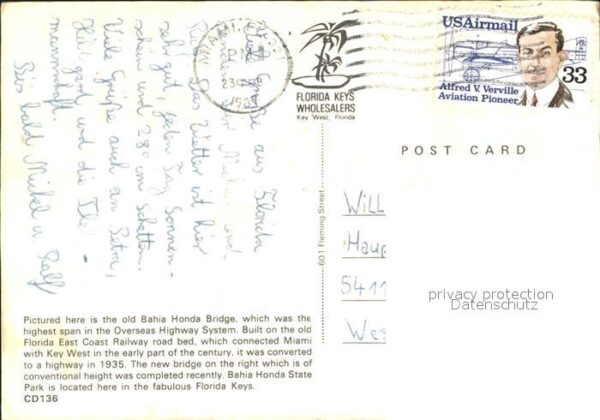 USAirmail
33
Alfred V. Verville
Aviation Pioneer
FLORIDA KEYS
WHOLESALERS
Key West, Florida
POST CARD
Grüße aus Florida
Das Wetter ist hier
sehr gut, jeden Tag Sonnen-
schein und 28° im Schatten.
Viele Grüße auch an Petra,
und die
mannschaft.
Bis bald Michel u. Ralf
601 Fleming Street
Will
Haup
5411
Wes
privacy protection
Datenschutz
Pictured here is the old Bahia Honda Bridge, which was the
highest span in the Overseas Highway System. Built on the old
Florida East Coast Railway road bed, which connected Miami
with Key West in the early part of the century, it was converted
to a highway in 1935. The new bridge on the right which is of
conventional height was completed recently. Bahia Honda State
Park is located here in the fabulous Florida Keys.
CD136